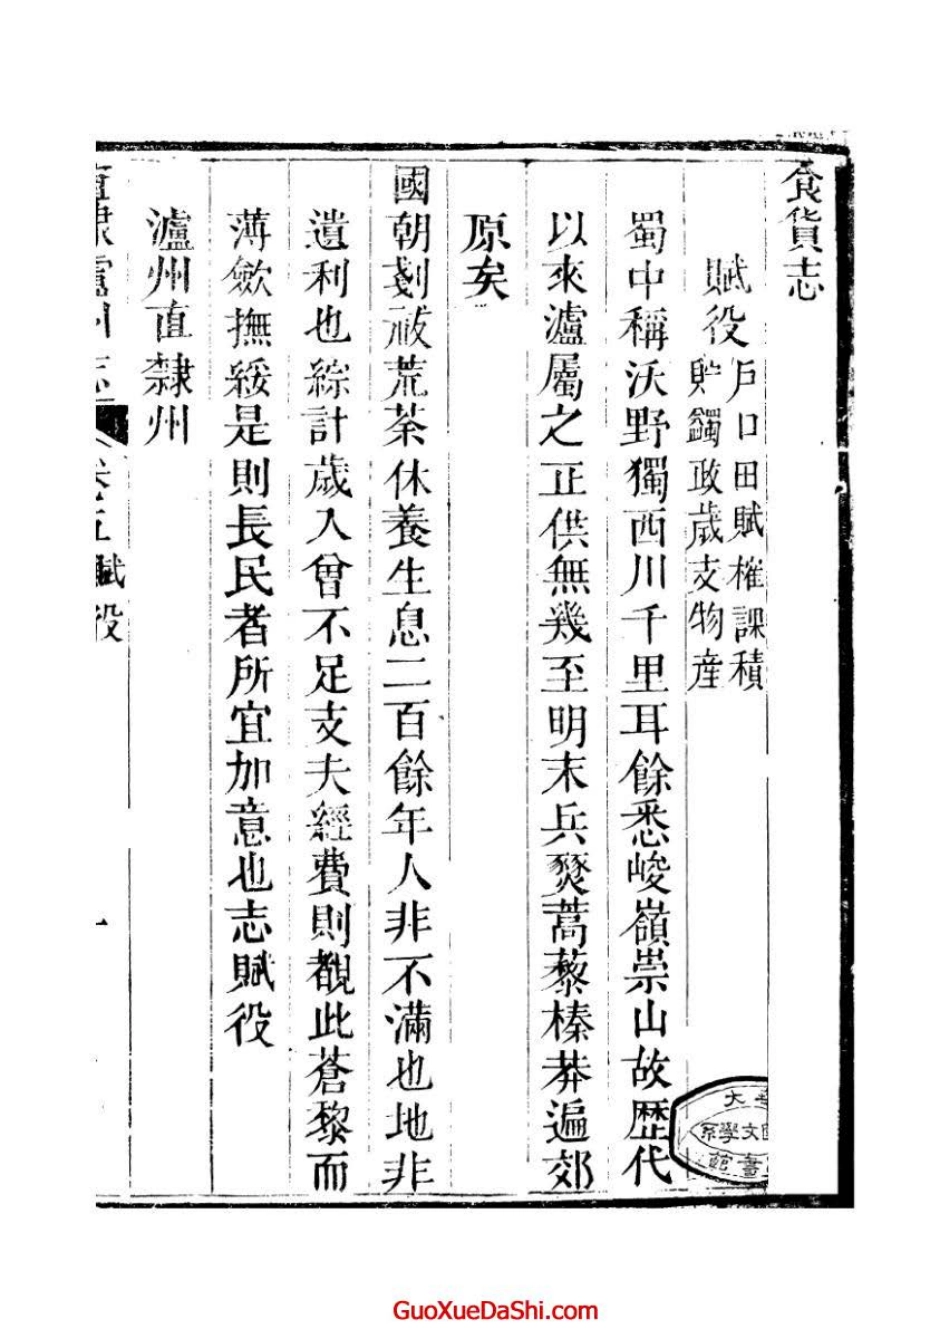 食貨志
賦役戶口田賦榷課積
貯蠲政歲支物産
蜀中稱沃野獨西川千里耳餘悉峻嶺崇山故歴代
以來瀘屬之正供無幾至明末兵燹蒿藜榛莽遍郊
原矣
國朝剗祓荒荼休養生息二百餘年人非不滿也地非
遺利也綜計歲入曾不足支夫經費則覩此蒼黎而
薄斂撫綏是則長民者所宜加意也志賦役
瀘州直隸州
直隸瀘州志 卷五 賦役 一
GuoXueDaShi.com